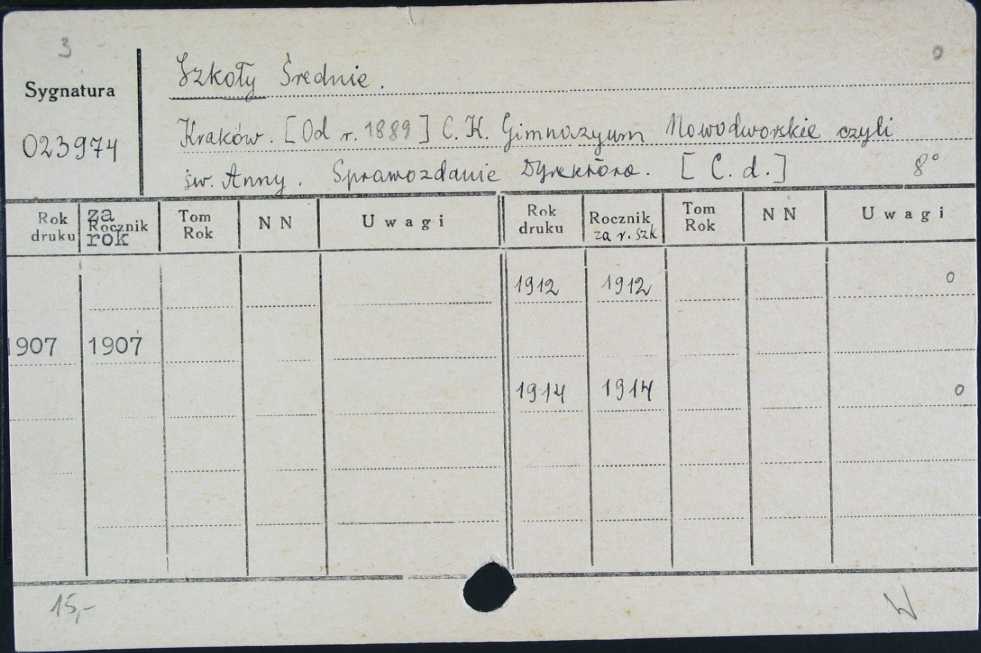 3
Szkoły Średnie.
o
Sygnatura
023974
Kraków. [Od r. 1889] C. K. Gimnazyum Nowodworskie czyli
św. Anny. Sprawozdanie Dyrektora. [C. d.] 8°
Rok druku
za Rocznik rok
Tom Rok
N N
Uwagi
Rok druku
Rocznik za r. szk
Tom Rok
N N
Uwagi
1912 1912 o
1907 1907
1914 1914 o
15,-
W